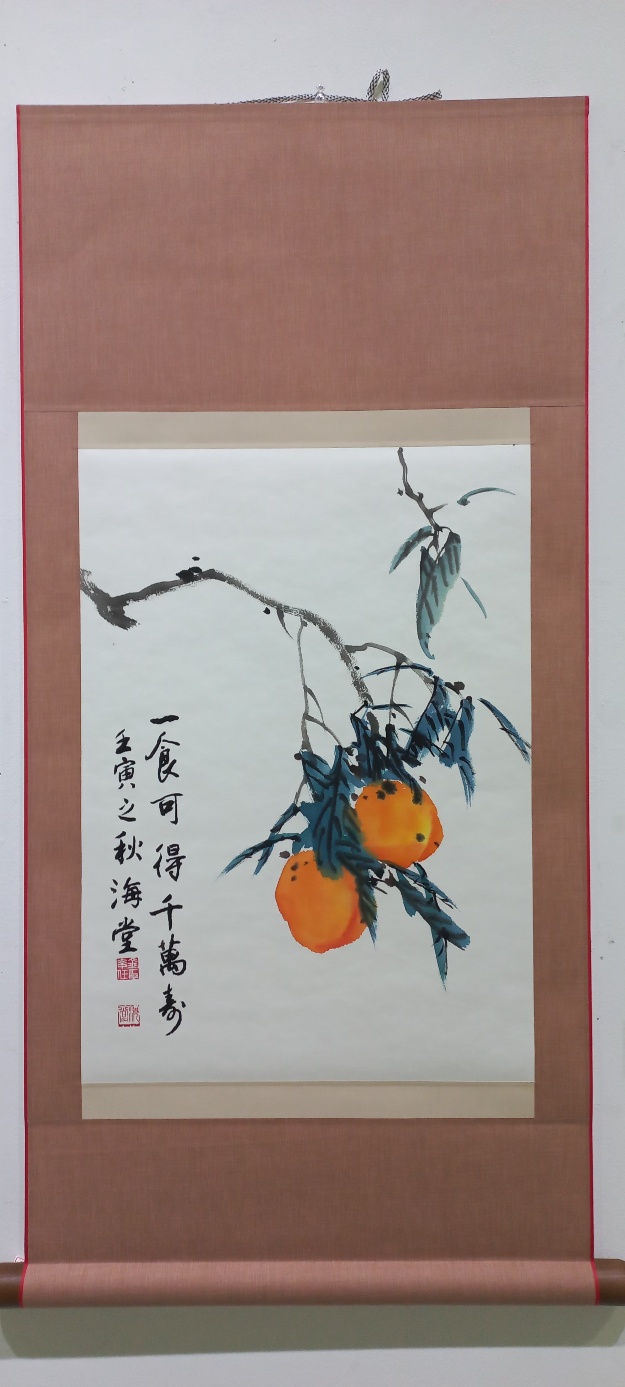 一食可得千萬壽
壬寅之秋海堂